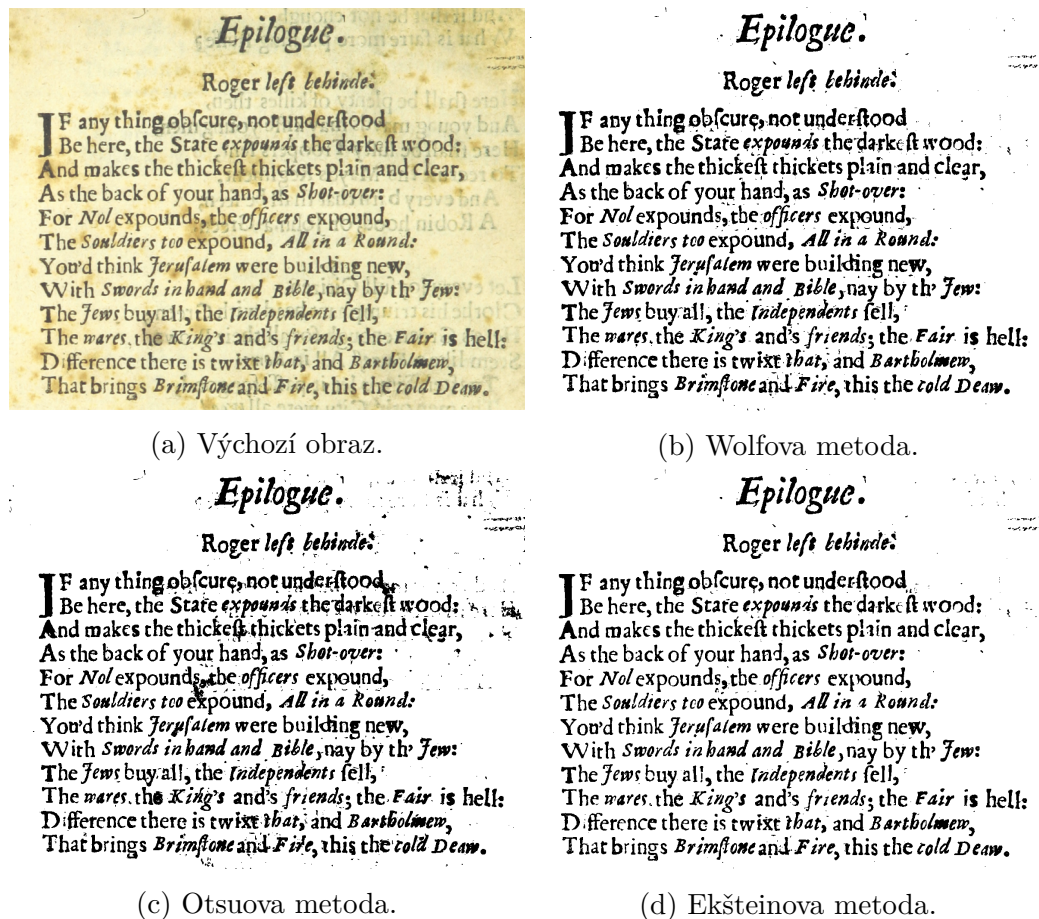 Epilogue.
Roger left behinde.
IF any thing obſcure, not underſtood
Be here, the State expounds the darkeſt wood:
And makes the thickeſt thickets plain and clear,
As the back of your hand, as Shot-over:
For Nol expounds, the officers expound,
The Souldiers too expound, All in a Round:
You'd think Jeruſalem were building new,
With Swords in hand and Bible, nay by th' Jew:
The Jews buy all, the Independents ſell,
The wares, the King's and's friends; the Fair is hell:
Difference there is twixt that, and Bartholmew,
That brings Brimſtone and Fire, this the cold Deaw.
(a) Výchozí obraz.
Epilogue.
Roger left behinde.
IF any thing obſcure, not underſtood
Be here, the State expounds the darkeſt wood:
And makes the thickeſt thickets plain and clear,
As the back of your hand, as Shot-over:
For Nol expounds, the officers expound,
The Souldiers too expound, All in a Round:
You'd think Jeruſalem were building new,
With Swords in hand and Bible, nay by th' Jew:
The Jews buy all, the Independents ſell,
The wares, the King's and's friends; the Fair is hell:
Difference there is twixt that, and Bartholmew,
That brings Brimſtone and Fire, this the cold Deaw.
(b) Wolfova metoda.
Epilogue.
Roger left behinde.
IF any thing obſcure, not underſtood
Be here, the State expounds the darkeſt wood:
And makes the thickeſt thickets plain and clear,
As the back of your hand, as Shot-over:
For Nol expounds, the officers expound,
The Souldiers too expound, All in a Round:
You'd think Jeruſalem were building new,
With Swords in hand and Bible, nay by th' Jew:
The Jews buy all, the Independents ſell,
The wares, the King's and's friends; the Fair is hell:
Difference there is twixt that, and Bartholmew,
That brings Brimſtone and Fire, this the cold Deaw.
(c) Otsuova metoda.
Epilogue.
Roger left behinde.
IF any thing obſcure, not underſtood
Be here, the State expounds the darkeſt wood:
And makes the thickeſt thickets plain and clear,
As the back of your hand, as Shot-over:
For Nol expounds, the officers expound,
The Souldiers too expound, All in a Round:
You'd think Jeruſalem were building new,
With Swords in hand and Bible, nay by th' Jew:
The Jews buy all, the Independents ſell,
The wares, the King's and's friends; the Fair is hell:
Difference there is twixt that, and Bartholmew,
That brings Brimſtone and Fire, this the cold Deaw.
(d) Ekšteinova metoda.